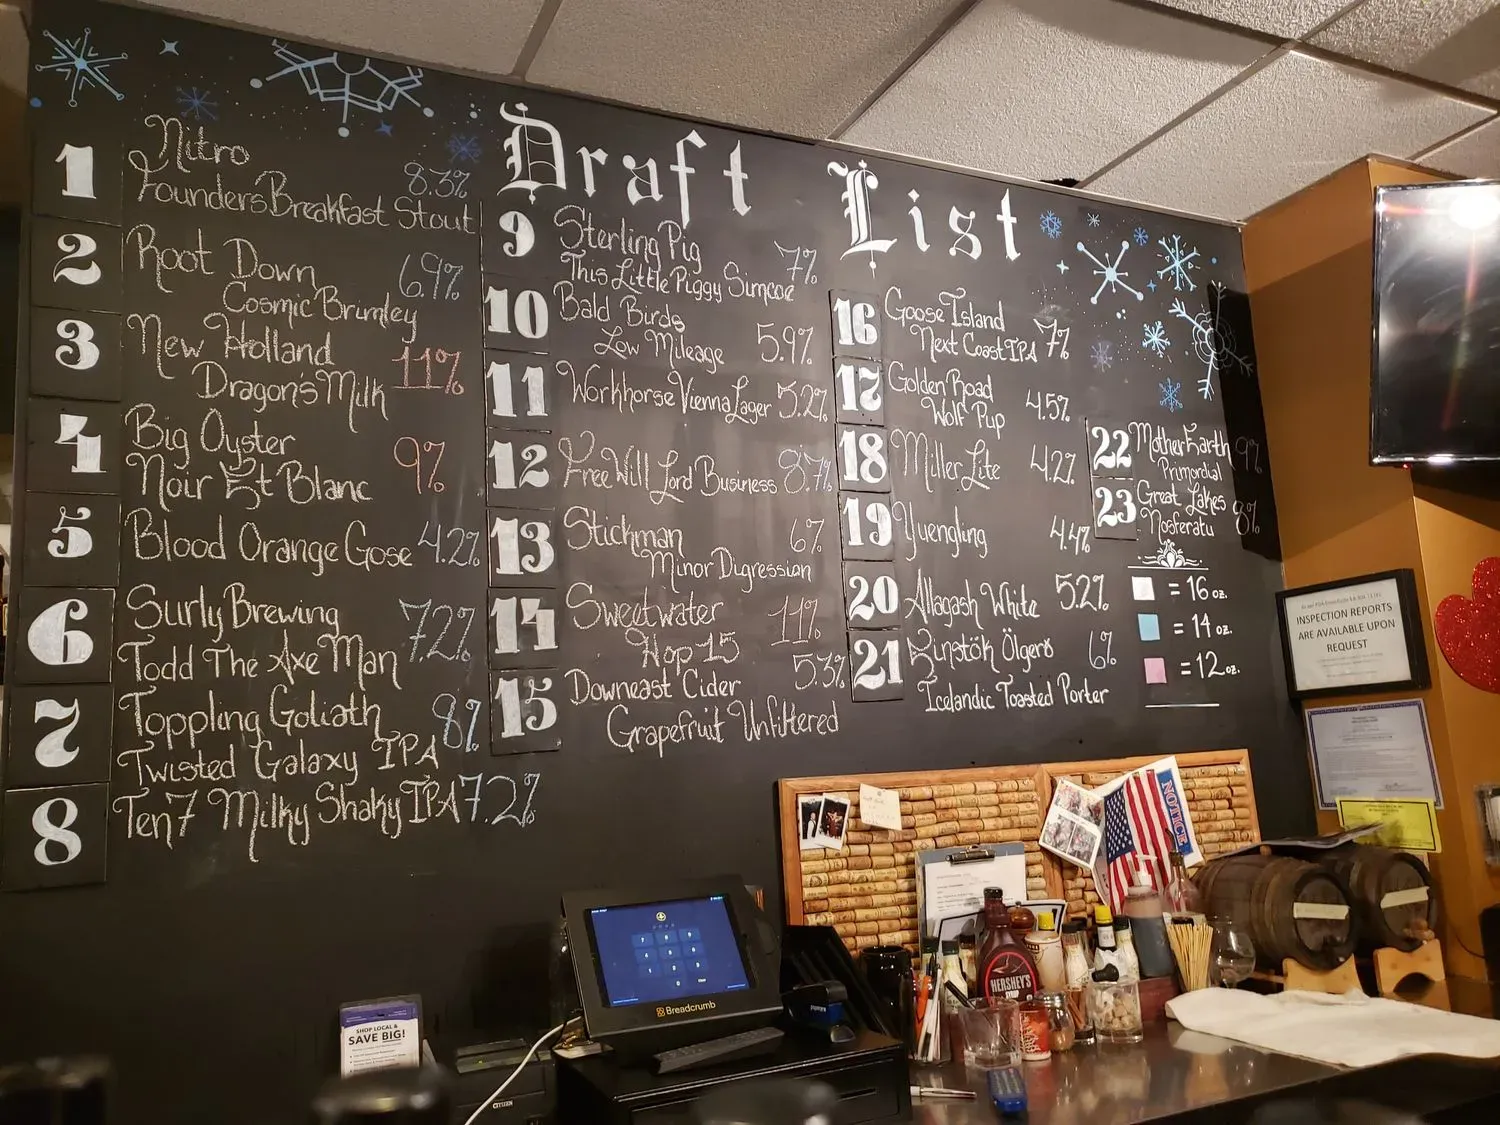 Draft List
1 Nitro
8.3%
Founders Breakfast Stout
2 Root Down 6.9%
Cosmic Brumley
3 New Holland 11%
Dragon's Milk
4 Big Oyster 9%
Noir Et Blanc
5 Blood Orange Gose 4.2%
6 Surly Brewing 7.2%
Todd The Axe Man
7 Toppling Goliath 8%
Twisted Galaxy IPA
8 Ten7 Milky Shaky IPA 7.2%
9 Sterling Pig 7%
This Little Piggy Simcoe
10 Bald Birds
Low Mileage 5.9%
11 Workhorse Vienna Lager 5.2%
12 Free Will Lord Business 8.7%
13 Stickman 6%
Minor Digression
14 Sweetwater 11%
Hop 15
15 Downeast Cider 5.3%
Grapefruit Unfiltered
16 Goose Island
Next Coast IPA 7%
17 Golden Road
Wolf Pup 4.5%
18 Miller Lite 4.2%
19 Yuengling 4.4%
20 Allagash White 5.2%
21 Einstök Ölgerð 6%
Icelandic Toasted Porter
22 Mother Earth 9%
Primordial
23 Great Lakes 8%
Nosferatu
= 16 oz.
= 14 oz.
= 12 oz.
INSPECTION REPORTS
ARE AVAILABLE UPON
REQUEST
NOTICE
HERSHEY'S
Breadcrumb
SHOP LOCAL &
SAVE BIG!
CITIZEN